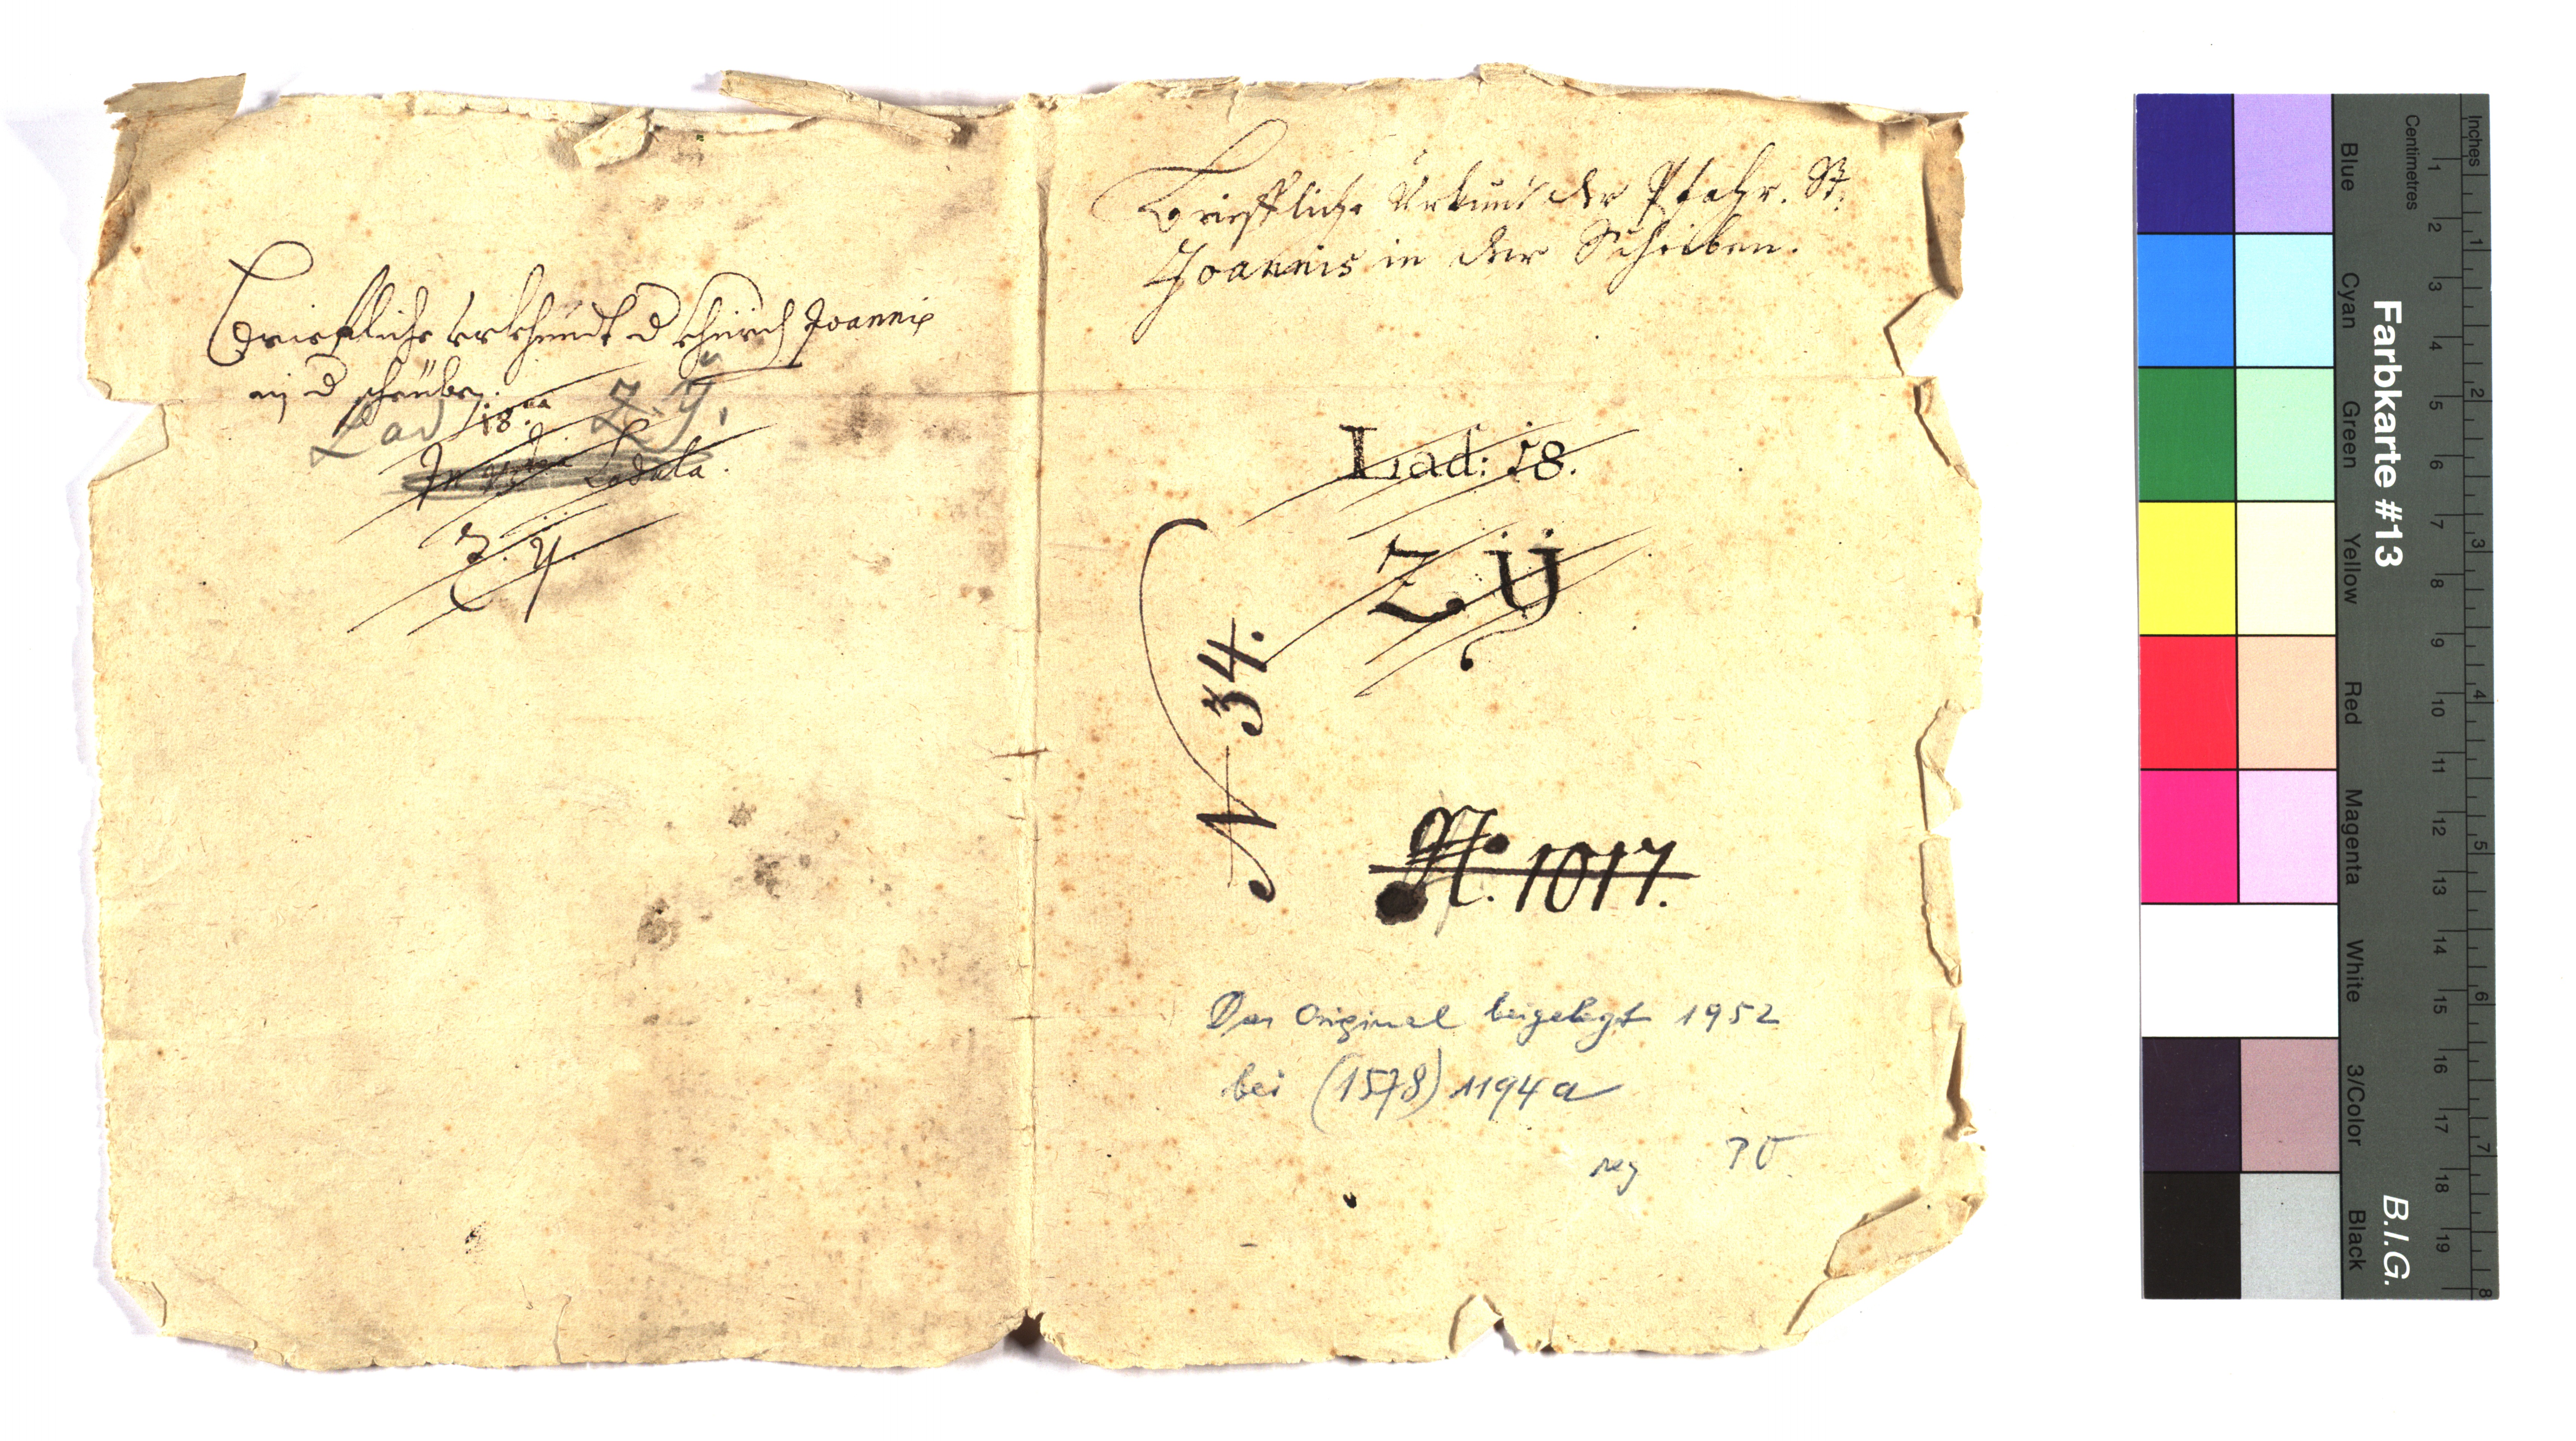 Brieffliche Urkhundt d Khürch Joannis
in d scheüben.
Lad 18.va Z. ÿ.
In Ladula.
Z. ÿ.
Brieffliche Urkund der Pfahr. St.
Joannis in der Scheiben.
Lad: 18.
Z Ÿ
N 34.
N. 1017.
Das Original beigelegt 1952
bei (1578) 1194a
Inches
Centimetres
1 2 3 4 5 6 7 8 9 10 11 12 13 14 15 16 17 18 19
1 2 3 4 5 6 7 8
Farbkarte #13
B.I.G.
Blue
Cyan
Green
Yellow
Red
Magenta
White
3/Color
Black